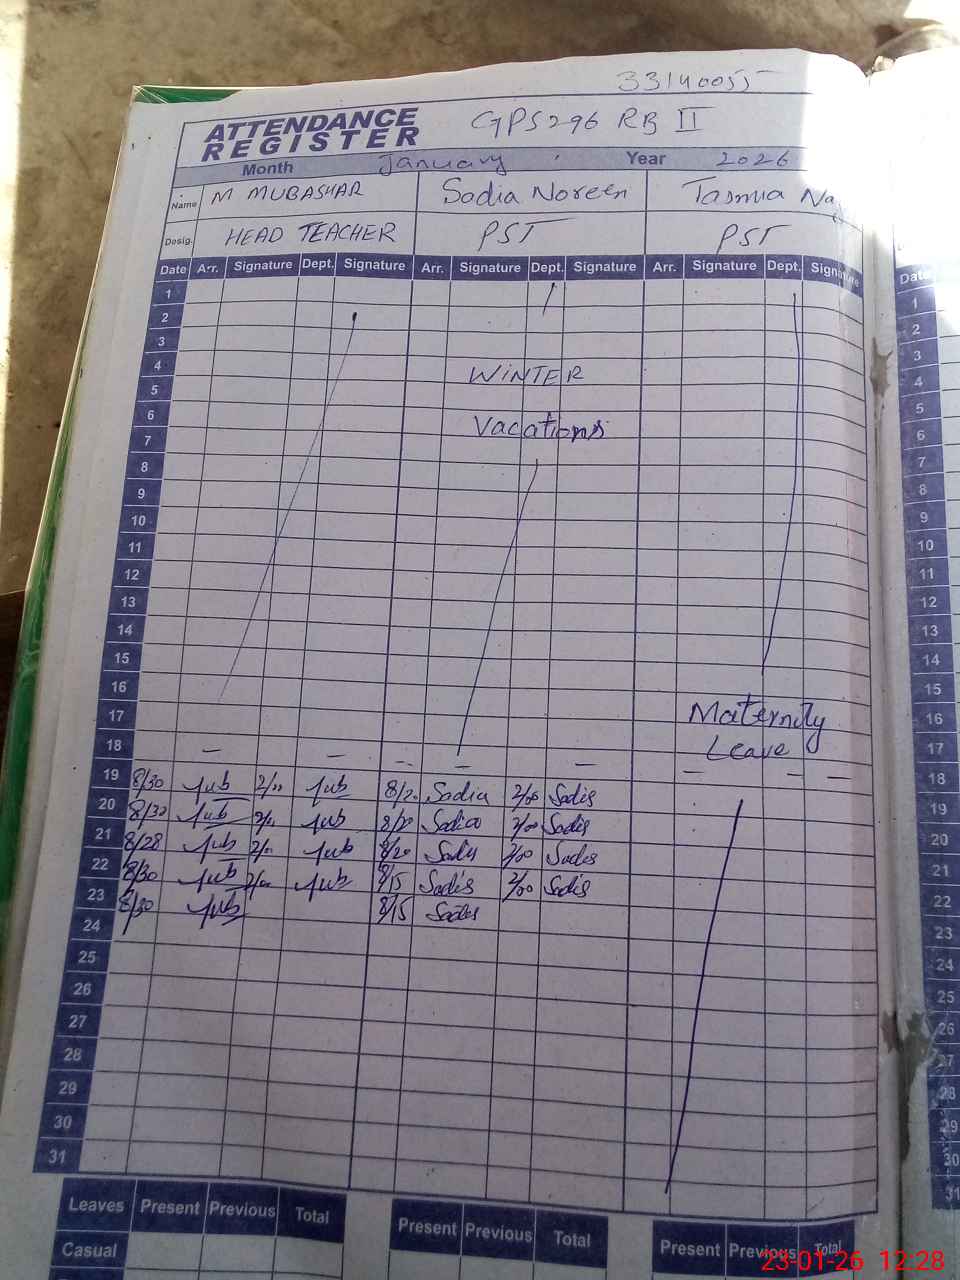 33140055
ATTENDANCE REGISTER
GPS 296 RB II
Month January Year 2026
Name M MUBASHAR Sadia Noreen Tasmia
Desig. HEAD TEACHER PST PST
Date Arr. Signature Dept. Signature Arr. Signature Dept. Signature Arr. Signature Dept. Signature Date
1 1
2 2
3 3
4 4
WINTER
5 5
6 6
Vacations
7 7
8 8
9 9
10 10
11 11
12 12
13 13
14 14
15 15
16 16
Maternity
17 17
Leave
18 – – – – – – – – 18
19 8/30 Mub 2/00 Mub 8/20 Sadia 2/00 Sadia 19
20 8/30 Mub 2/00 Mub 8/20 Sadia 2/00 Sadia 20
21 8/28 Mub 2/00 Mub 8/20 Sadia 2/00 Sadia 21
22 8/30 Mub 2/00 Mub 8/15 Sadia 2/00 Sadia 22
23 8/30 Mub 8/15 Sadia 23
24 24
25 25
26 26
27 27
28 28
29 29
30 30
31 31
Leaves Present Previous Total Present Previous Total Present Previous Total
Casual
23-01-26 12:28